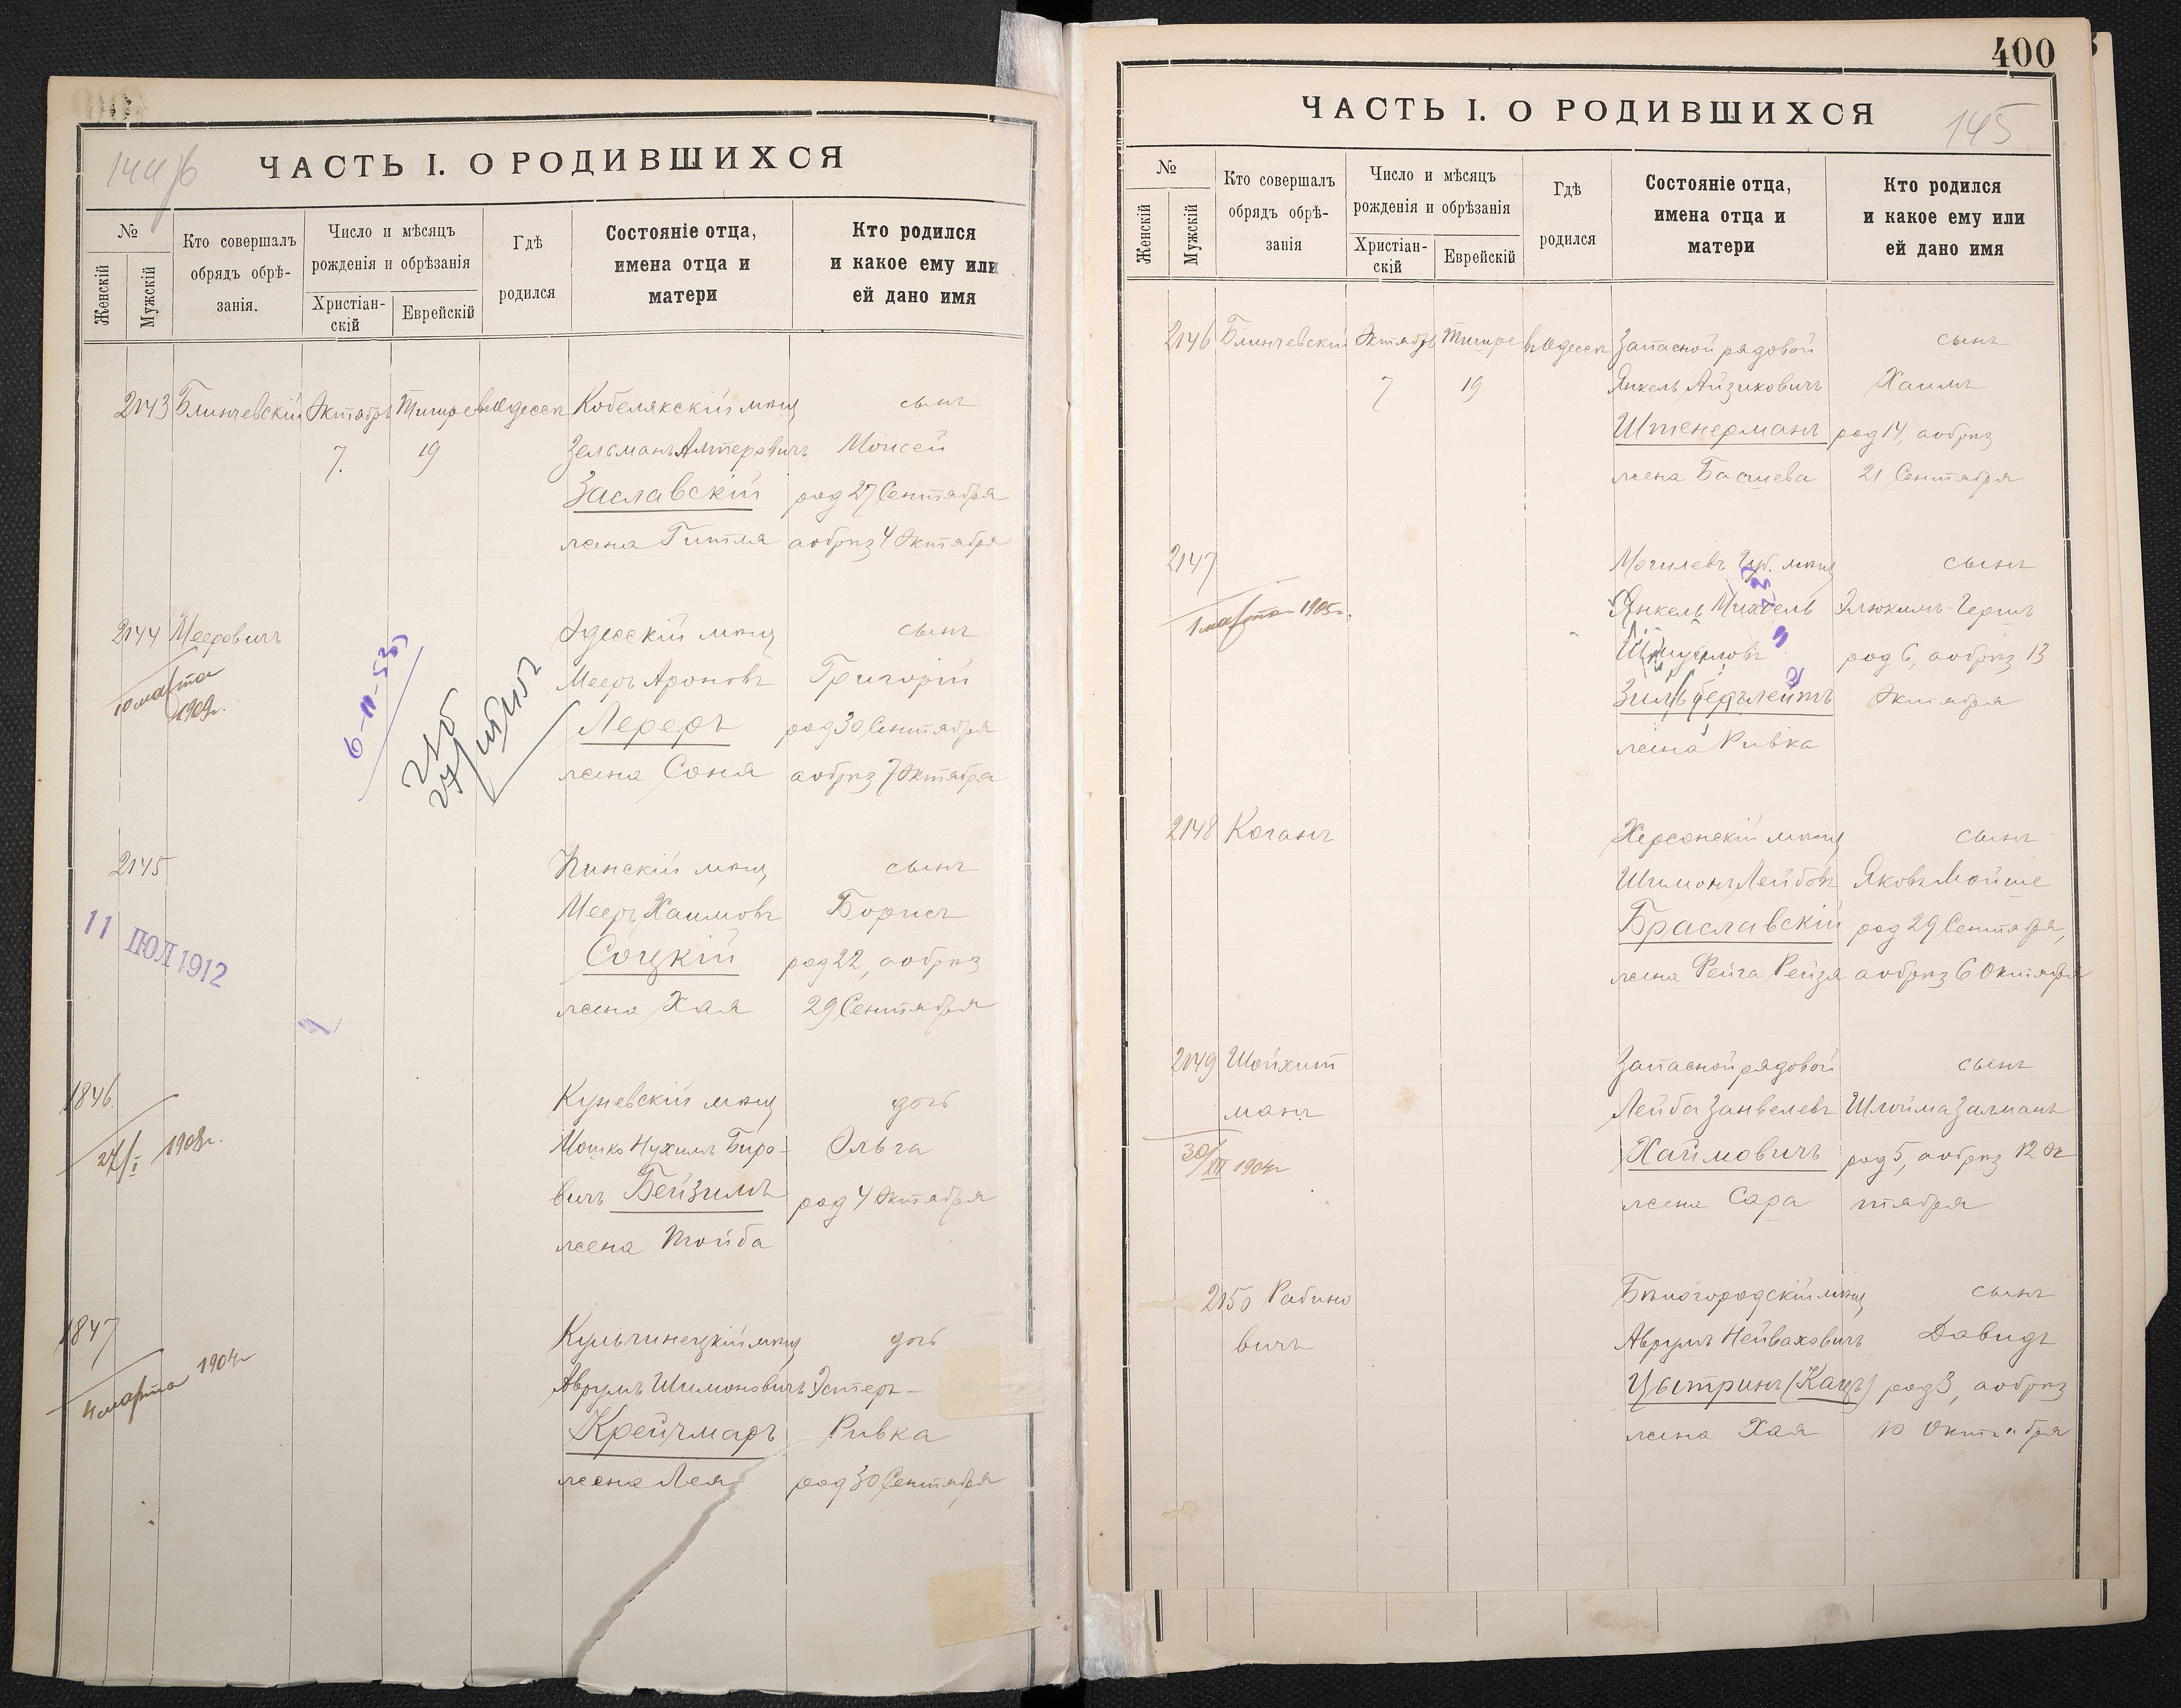 144 об
ЧАСТЬ I. О РОДИВШИХСЯ
№
Женскій
Мужскій
Кто совершалъ
обрядъ обрѣ-
занія.
Число и мѣсяцъ
рожденія и обрѣзанія
Христіан-
скій
Еврейскій
Гдѣ
родился
Состояніе отца,
имена отца и
матери
Кто родился
и какое ему или
ей дано имя
2143 Блинчевскій Октябрь Тишре въ Одессѣ Кобелякскій мѣщ сынъ
7. 19 Зельманъ Алтеровичъ Моисей
Заславскій род 27 Сентября
жена Гитля а обрѣз 4 Октября
2144 Мееровичъ Одесскій мѣщ сынъ
10 марта Мееръ Ароновъ Григорій
1909г. Лереръ род 30 Сентября
жена Соня а обрѣз 7 Октября
2145 Пинскій мѣщ сынъ
Мееръ Хаимовъ Борисъ
11 ІЮЛ 1912 Соцкій род 22, а обрѣз
жена Хая 29 Сентября
1846. Куневскій мѣщ дочь
27/I 1908г. Мошко Нухимъ Биро- Ольга
вичъ Бейзимъ род 4 Октября
жена Тойба
1847 Кульчинецкій мѣщ дочь
4 марта 1904г Аврумъ Шимоновичъ Эстеръ-
Крейчмаръ Ривка
жена Лея род 30 Сентября
400
ЧАСТЬ I. О РОДИВШИХСЯ
145
№
Женскій
Мужскій
Кто совершалъ
обрядъ обрѣ-
занія
Число и мѣсяцъ
рожденія и обрѣзанія
Христіан-
скій
Еврейскій
Гдѣ
родился
Состояніе отца,
имена отца и
матери
Кто родился
и какое ему или
ей дано имя
2146 Блинчевскій Октябрь Тишре въ Одессѣ Запасной рядовой сынъ
7 19 Янкель Айзиковичъ Хаимъ
Штенерманъ род 14, а обрѣз
жена Басшева 21 Сентября
2147 Могилевъ Губ. мѣщ сынъ
1 марта 1905г. Янкель Михель Элюкимъ-Гершъ
род 6, а обрѣз 13
Октября
жена Ривка
2148 Коганъ Херсонскій мѣщ сынъ
Шимонъ Лейбовъ Яковъ Мойше
Браславскій род 29 Сентября,
жена Фейга Рейзя а обрѣз 6 Октября
2149 Шойхит Запасной рядовой сынъ
манъ Лейба Занвелевъ Шлойма Залманъ
30/XII 1904г Хаймовичъ род 5, а обрѣз 12 Ок
жена Сара тября
2150 Рабино Бѣлогородскій мѣщ сынъ
вичъ Аврумъ Нейваховичъ Давидъ
Цытринъ (Кацъ) род 3, а обрѣз
жена Хая 10 Октября